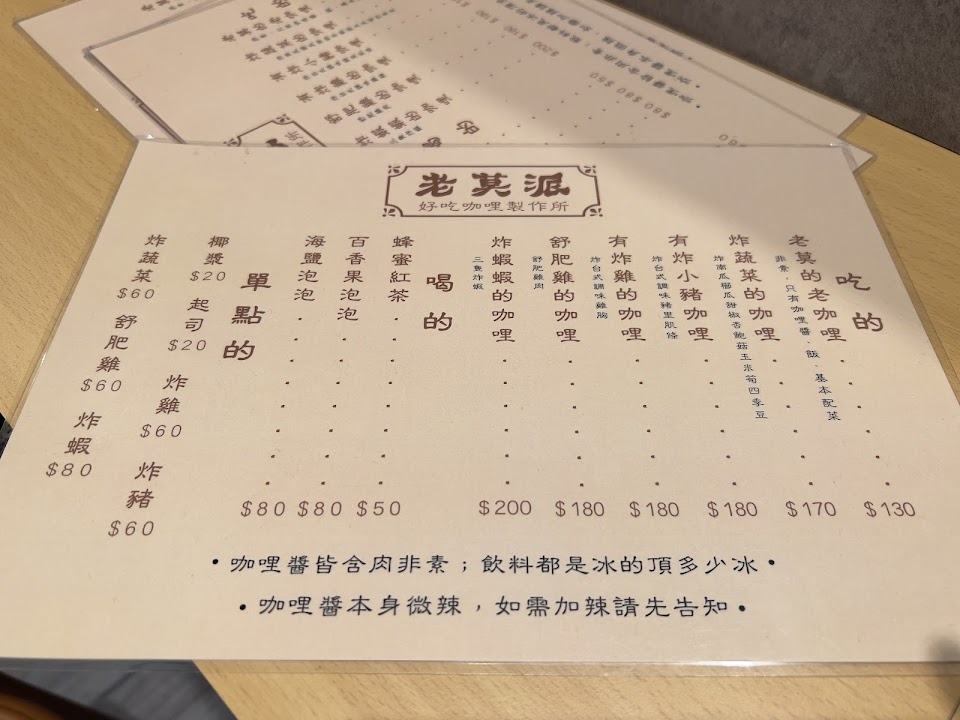 老莫派
好吃咖哩製作所
吃的
老莫的老咖哩
非素，只有咖哩醬、飯、基本配菜
$130
炸蔬菜的咖哩
炸南瓜櫛瓜甜椒杏鮑菇玉米筍四季豆
$170
有炸小豬咖哩
炸台式調味豬里肌條
$180
有炸雞的咖哩
炸台式調味雞胸
$180
舒肥雞的咖哩
舒肥雞肉
$180
炸蝦蝦的咖哩
三隻炸蝦
$200
喝的
蜂蜜紅茶
$50
百香果泡泡
$80
海鹽泡泡
$80
單點的
椰漿
$20
起司
$20
炸雞
$60
炸豬
$60
炸蔬菜
$60
舒肥雞
$60
炸蝦
$80
•咖哩醬皆含肉非素；飲料都是冰的頂多少冰•
•咖哩醬本身微辣，如需加辣請先告知•